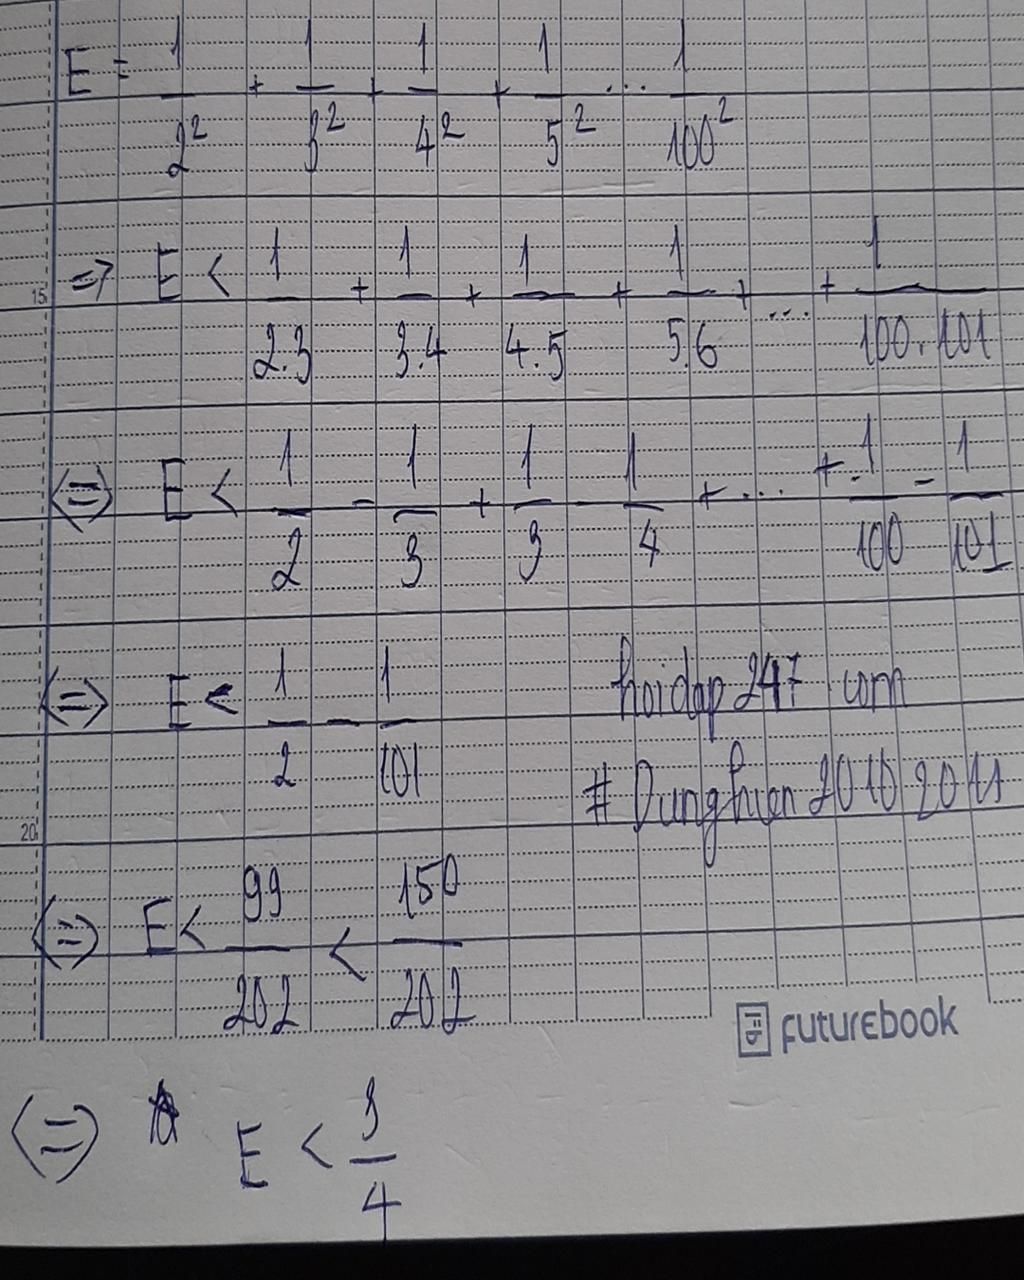 E = 1/2² + 1/3² + 1/4² + 1/5² ... 1/100²
=> E < 1/2.3 + 1/3.4 + 1/4.5 + 1/5.6 + ... + 1/100.101
15
<=> E < 1/2 - 1/3 + 1/3 - 1/4 + ... + 1/100 - 1/101
<=> E < 1/2 - 1/101
hoidap247.com
# Dunghien20102011
20
<=> E < 99/202 < 150/202
futurebook
<=> E < 3/4